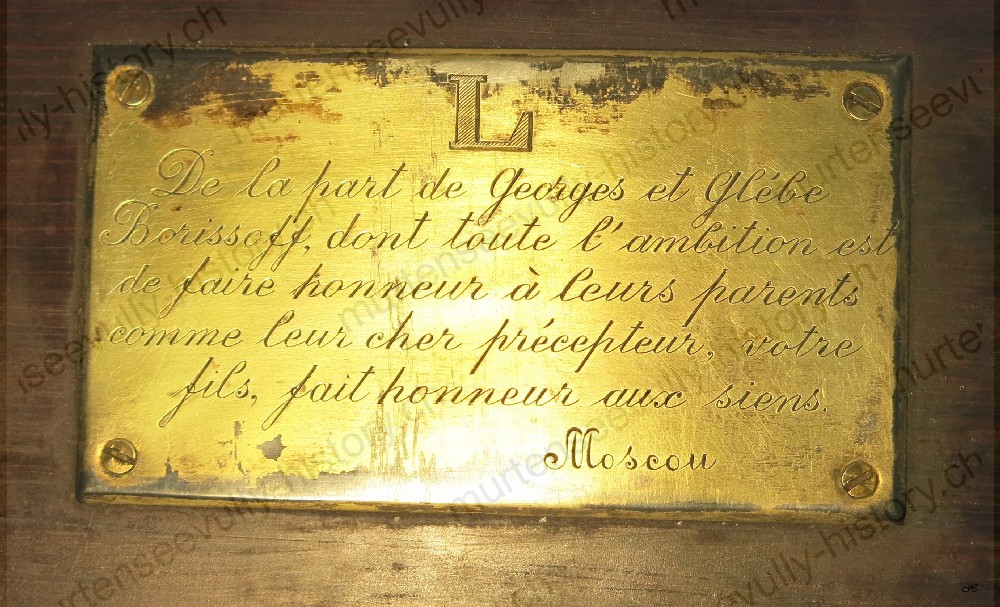 L
De la part de Georges et Glébe
Borissoff, dont toute l'ambition est
de faire honneur à leurs parents
comme leur cher précepteur, votre
fils, fait honneur aux siens.
Moscou
murtenseevully-history.ch